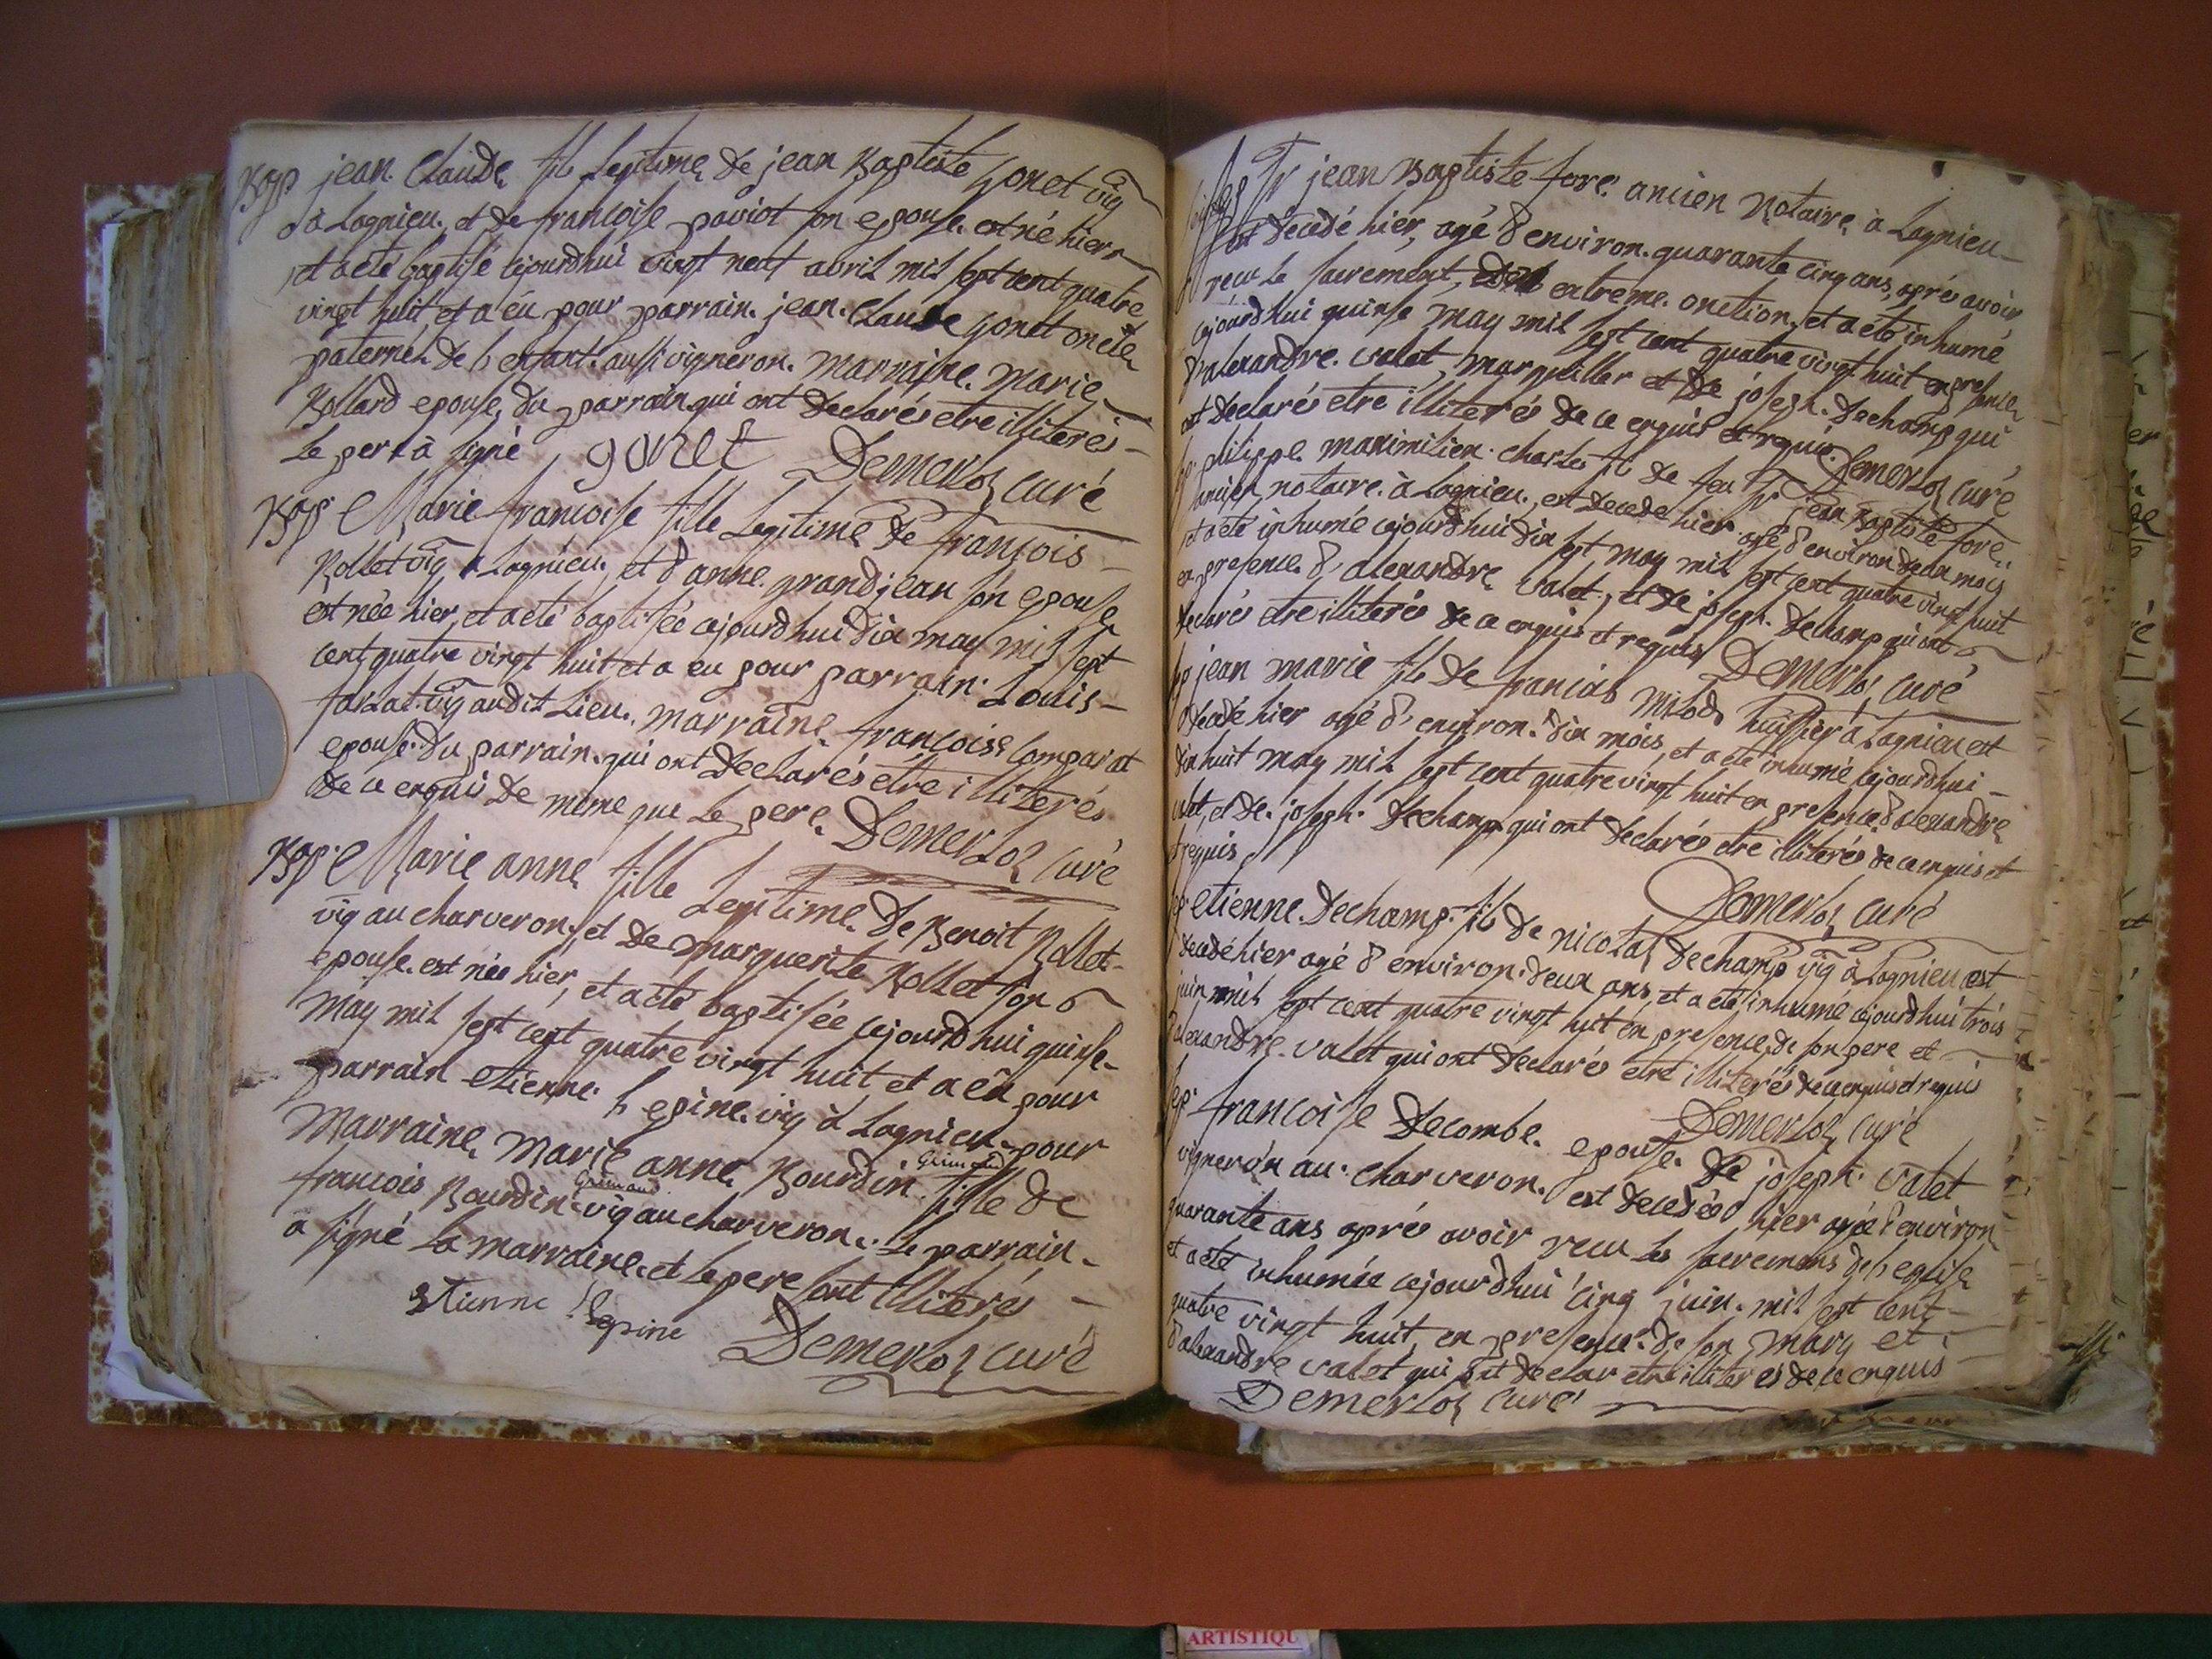 Bap jean Claude fils legitime de jean Baptiste gonet vig
à Lagnieu. et de francoise paviot son epouse. est né hier
et a eté baptisé cejourdhui vingt neuf avril mil sept cent quatre
vingt huit et a eu pour parrain. jean. Claude gonet oncle
paternel de l'enfant. aussi vigneron. marraine. marie
Rollard epouse, du parrain. qui ont declarés etre illiterés
Le pere à signé gonet Demerloz curé
Bap Marie françoise fille Legitime de françois
Rollet vig à Lagnieu, et d'anne. grandjean son epouse
est née hier, et a eté baptisée cejourdhui dix may mil sept
cent quatre vingt huit et a eu pour parrain. Louis
vig audit Lieu. marraine francoise Comparat
epouse. du parrain. qui ont declarés etre illiterés
de ce enquis de meme que Le pere. Demerloz curé
Bap Marie anne fille Legitime. de Benoit
vig au charveron, et de marguerite Rollet son
epouse. est née hier, et a eté baptisée cejourdhui quinse
may mil sept cent quatre vingt huit et a eu pour
parrain etienne. Lepine. vig à Lagnieu. pour
Marraine Marie anne Bourdin Grimaud fille de
francois Bourdin Grimaud vig au charveron. Le parrain
a signé La marraine. et Le pere sont illiterés
Etienne Lepine Demerloz curé
Sr jean Baptiste fore. ancien Notaire à Lagnieu
est decedé hier, agé d'environ. quarante cinq ans, aprés avoir
recu le sacrement, extreme. onction, et a eté inhumé
cejourdhui quinse may mil sept cent quatre vingt huit en presence
d'alexandre. valet, marguiller et de joseph. dechamp qui
ont declarés etre illiterés de ce enquis et requis. Demerloz curé
philippe. maximilien. charles fils de feu Sr jean Baptiste fore
ancien notaire. à Lagnieu. est decedé hier agé d'environ deux mois
et a eté inhumé cejourdhui dix sept may mil sept cent quatre vingt huit
en presence. d'alexandre valet, et de joseph. dechamp qui ont
declarés etre illiterés de ce enquis et requis Demerloz curé
jean marie fils de francois milod huissier à Lagnieu est
decedé hier agé d'environ. dix mois, et a eté inhumé cejourdhui
dix huit may mil sept cent quatre vingt huit en presence. d'alexandre
valet, et de. joseph. dechamp. qui ont declarés etre illiterés de ce enquis et
requis Demerloz curé
etienne. dechamp. fils de nicolas dechamp vig à Lagnieu est
decedé hier agé d'environ. deux ans, et a eté inhumé cejourdhui trois
juin mil sept cent quatre vingt huit en presence, de son pere et
d'alexandre. valet qui ont declarés etre illiterés de ce enquis et requis
Demerloz curé
francoise decombe. epouse. de joseph. valet
vigneron au. charveron. est decedée hier agée d'environ
quarante ans aprés avoir recu les sacremens de l'eglise
et a eté inhumée cejourdhui cinq juin. mil sept cent
quatre vingt huit, en presence. de son mary et
d'alexandre valet qui ont declar etre illiterés de ce enquis
Demerloz curé
ARTISTIQU